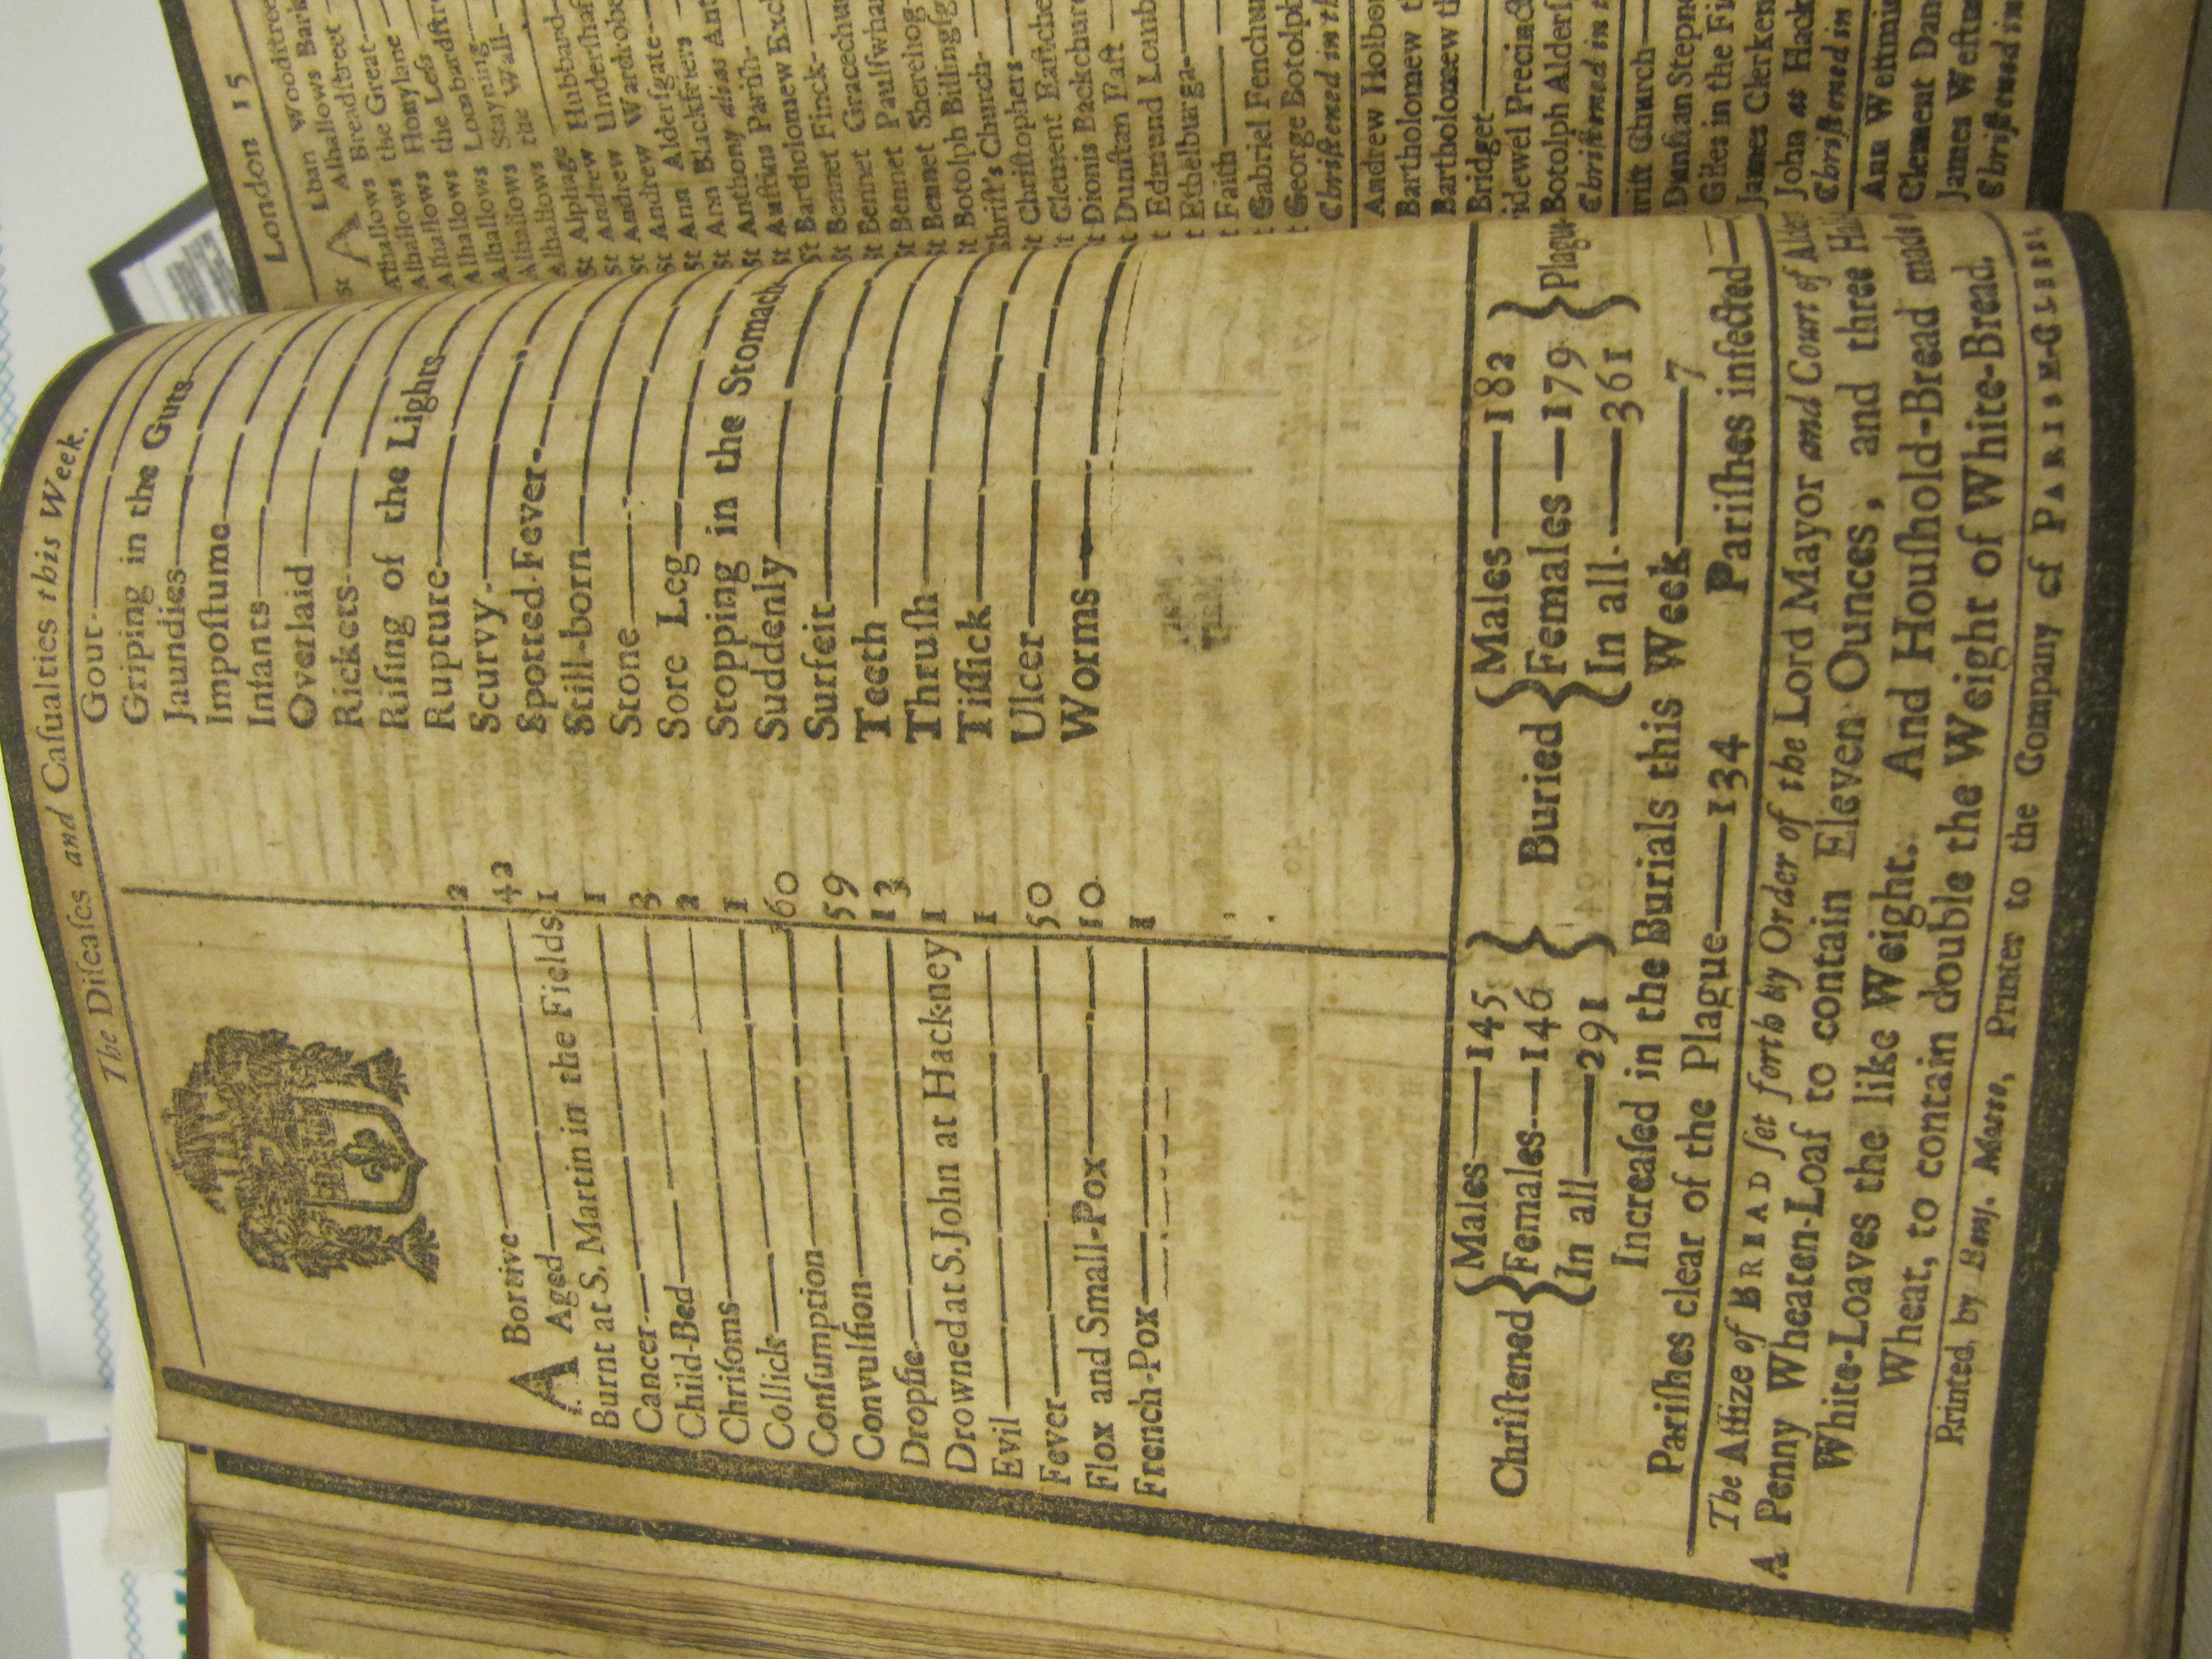 The Diſeaſes and Caſualties this Week.
ABortive 2
Aged 42
Burnt at S. Martin in the Fields 1
Cancer 1
Child-Bed 3
Chriſoms 2
Collick 1
Conſumption 60
Convulſion 59
Dropſie 13
Drowned at S. John at Hackney 1
Evil 1
Fever 50
Flox and Small-Pox 10
French-Pox 1
Gout
Griping in the Guts
Jaundies
Impoſtume
Infants
Overlaid
Rickets
Riſing of the Lights
Rupture
Scurvy
Spotted Fever
Still-born
Stone
Sore Leg
Stopping in the Stomach
Suddenly
Surfeit
Teeth
Thruſh
Tiſſick
Ulcer
Worms
Chriſtened { Males 145 Females 146 In all 291 } Buried { Males 182 Females 179 In all 361 } Plague
Increaſed in the Burials this Week 7
Pariſhes clear of the Plague 134 Pariſhes infected
The Aſſize of BREAD ſet forth by Order of the Lord Mayor and Court of
A Penny Wheaten-Loaf to contain Eleven Ounces, and three
White-Loaves the like Weight. And Houſhold-Bread made
Wheat, to contain double the Weight of White-Bread.
Printed by Benj. Motte, Printer to the Company of PARISH-CLERKS
London 15
St ALban Woodſtree
Alhallows Bark
Alhallows Breadſtreet
Alhallows the Great
Alhallows Honylane
Alhallows the Leſs
Alhallows Lombardſtr
Alhallows Stayning
Alhallows the Wall
St Alphage Hubbard
St Andrew Underſhaf
St Andrew Wardrobe
St Ann Alderſgate
St Ann Blackfriers
St Anthony alias Ant
St Auſtins Pariſh
St Bartholomew Exch
St Bennet Finck
St Bennet Gracechur
St Bennet Paulſwhar
St Bennet Sherehog
St Botolph Billingſg
Chriſt's Church
St Chriſtophers
St Clement Eaſtche
St Dionis Backchurc
St Dunſtan Eaſt
St Edmund Lomb
St Ethelburga
St Faith
St Gabriel Fenchur
St George Botolph
Chriſtened in th
Andrew Holbo
Bartholomew
Bartholomew
Bridget
Precinct
Botolph Alderſ
Chriſtened in
Church
Dunſtan Stepn
Giles in the Fi
James Clerken
John at Hack
Chriſtened in
Ann Weſtmin
Clement Dan
James Weſtm
Chriſtened in